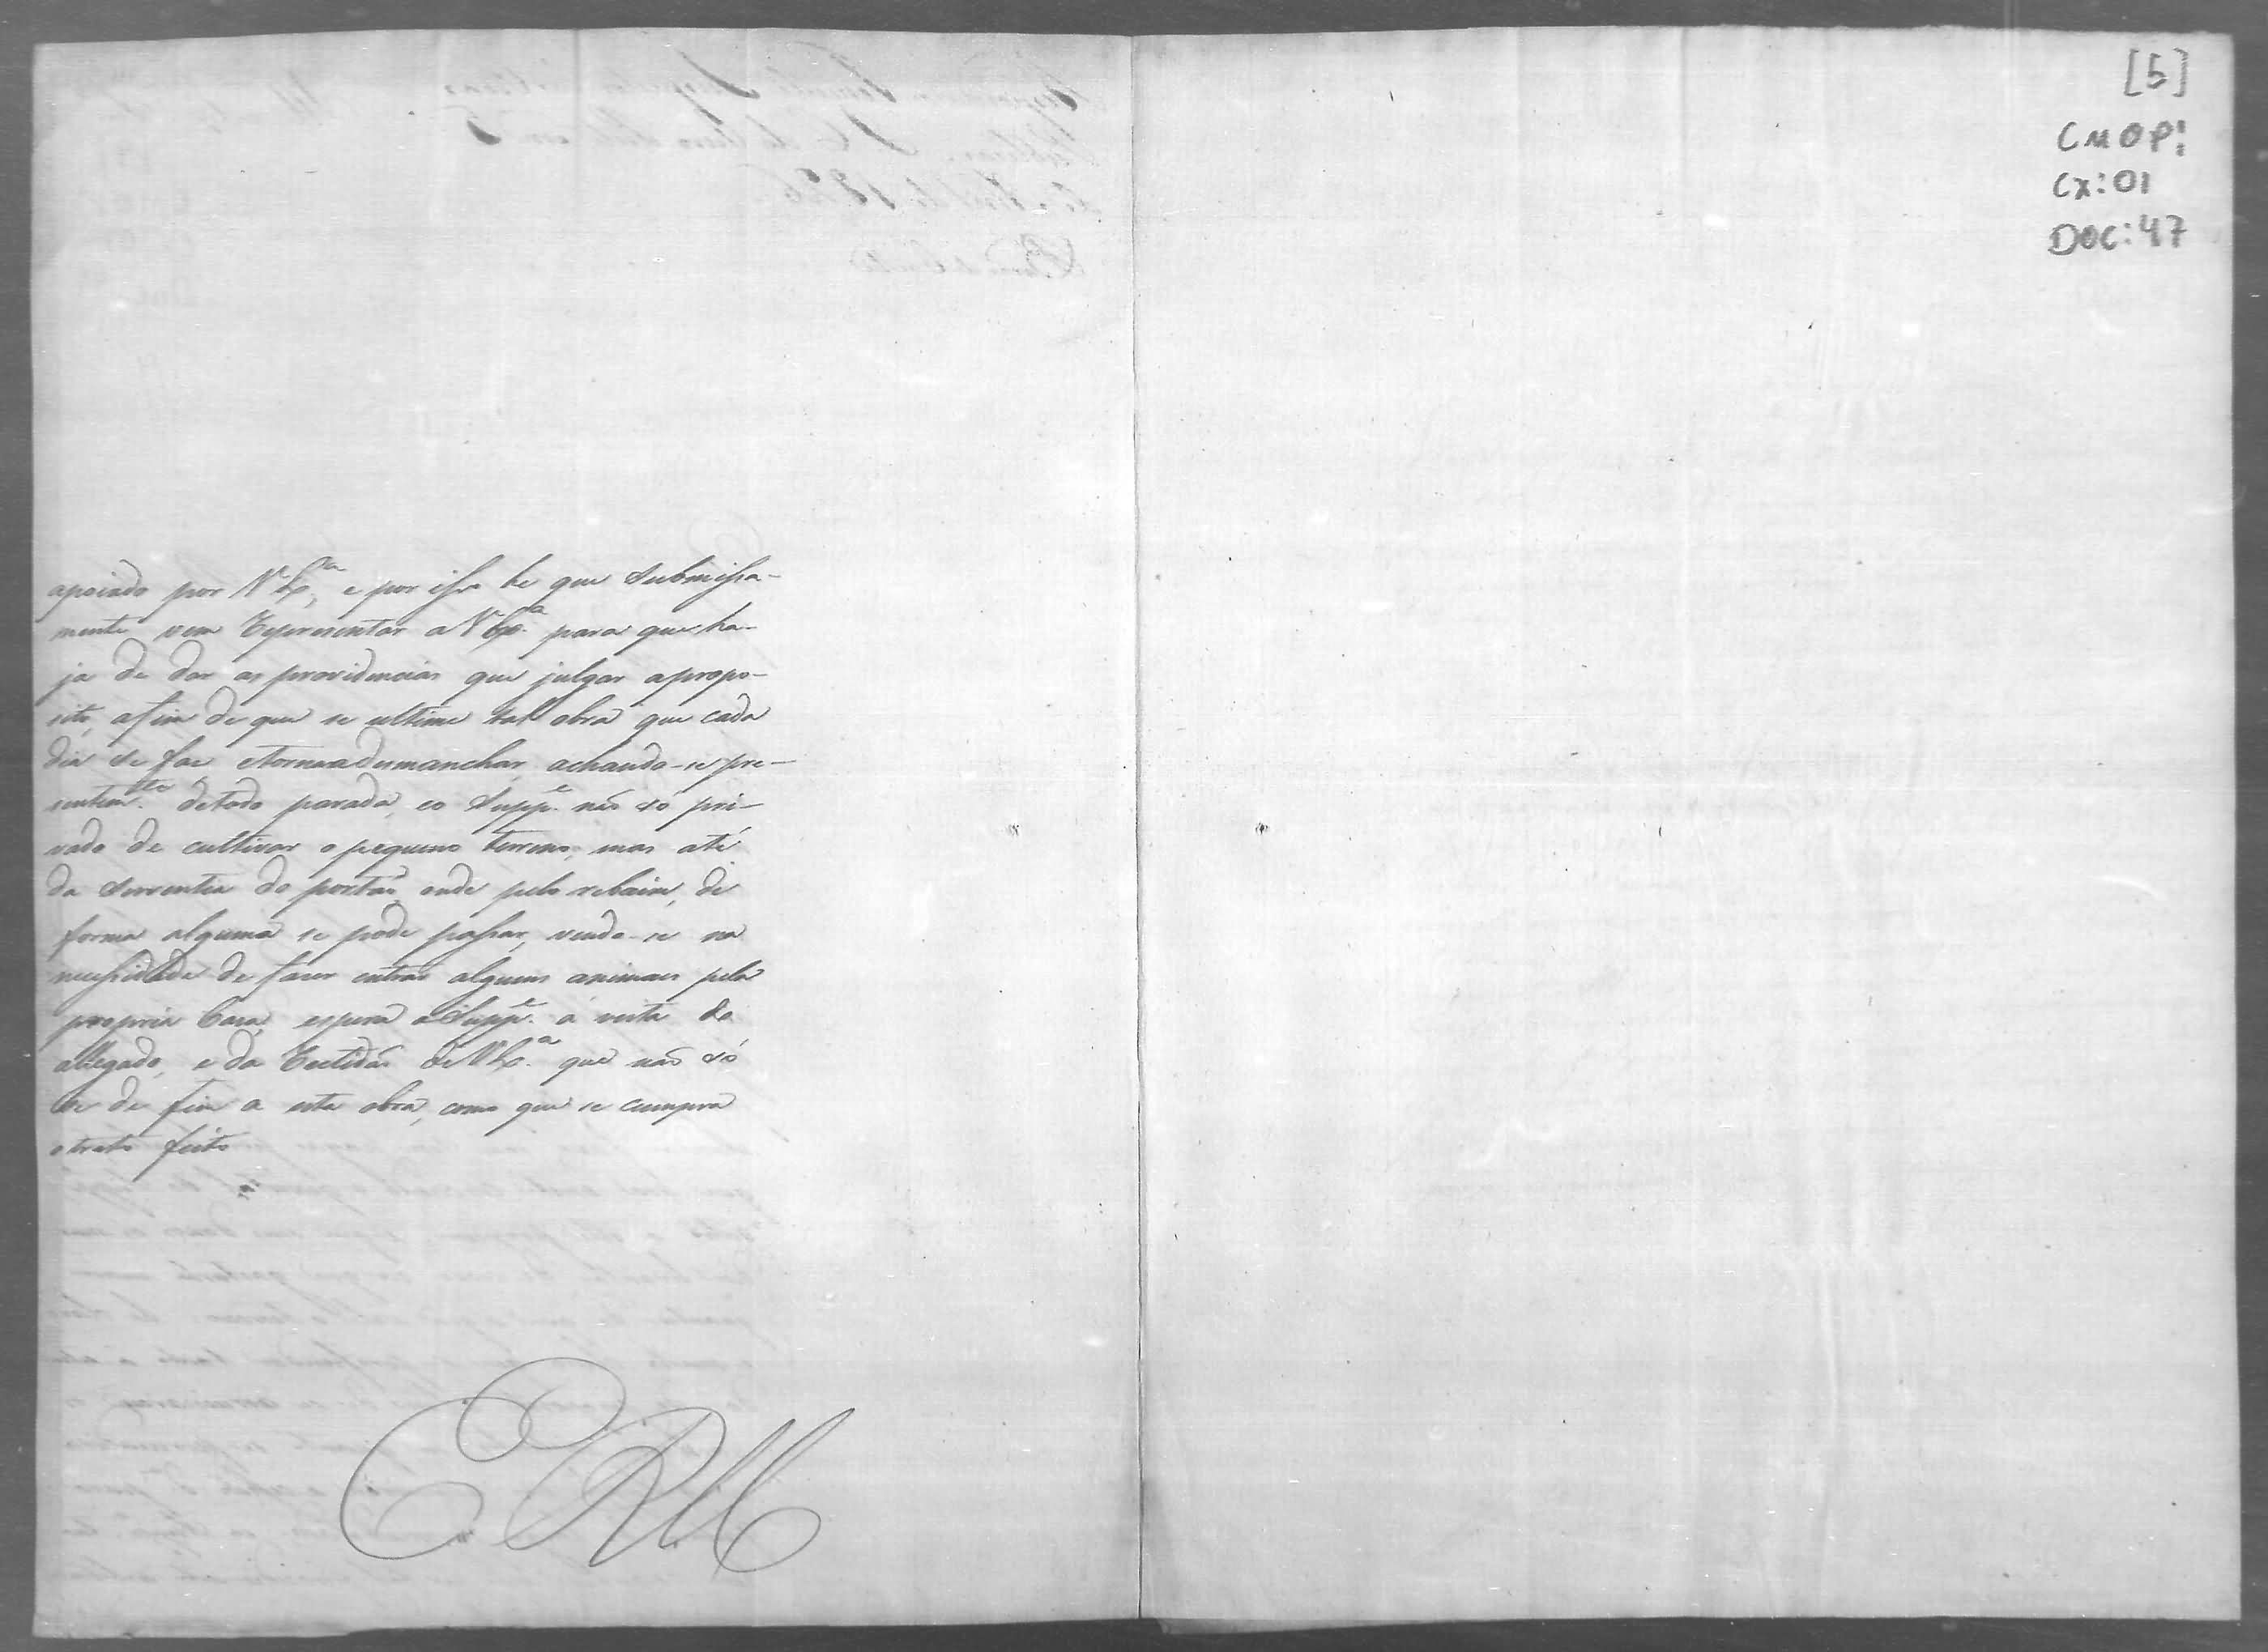 apoiado por V Ex.ª, e por isso he que submissa-
mente vem Representar a V Ex.ª para que ha-
ja de dar as providencias que julgar apropo-
sito, afim de que se ultime tal obra que cada
dia se faz e torna a desmanchar, achando-se pre-
sentem.te de todo parada, e o Supp.e não só pri-
vado de cultivar o pequeno terreno, mas até
da serventia do portão onde pelo rebaixe, de
forma alguma se pode passar, vendo-se na
necessidade de fazer entrar alguns animaes pela
propria Casa, espera o Supp.e á vista do
allegado, e da Rectidão de V Ex.ª que não só
se de fim a esta obra, como que se cumpra
o trato feito
E R M
[5]
CMOP:
CX: 01
DOC: 47